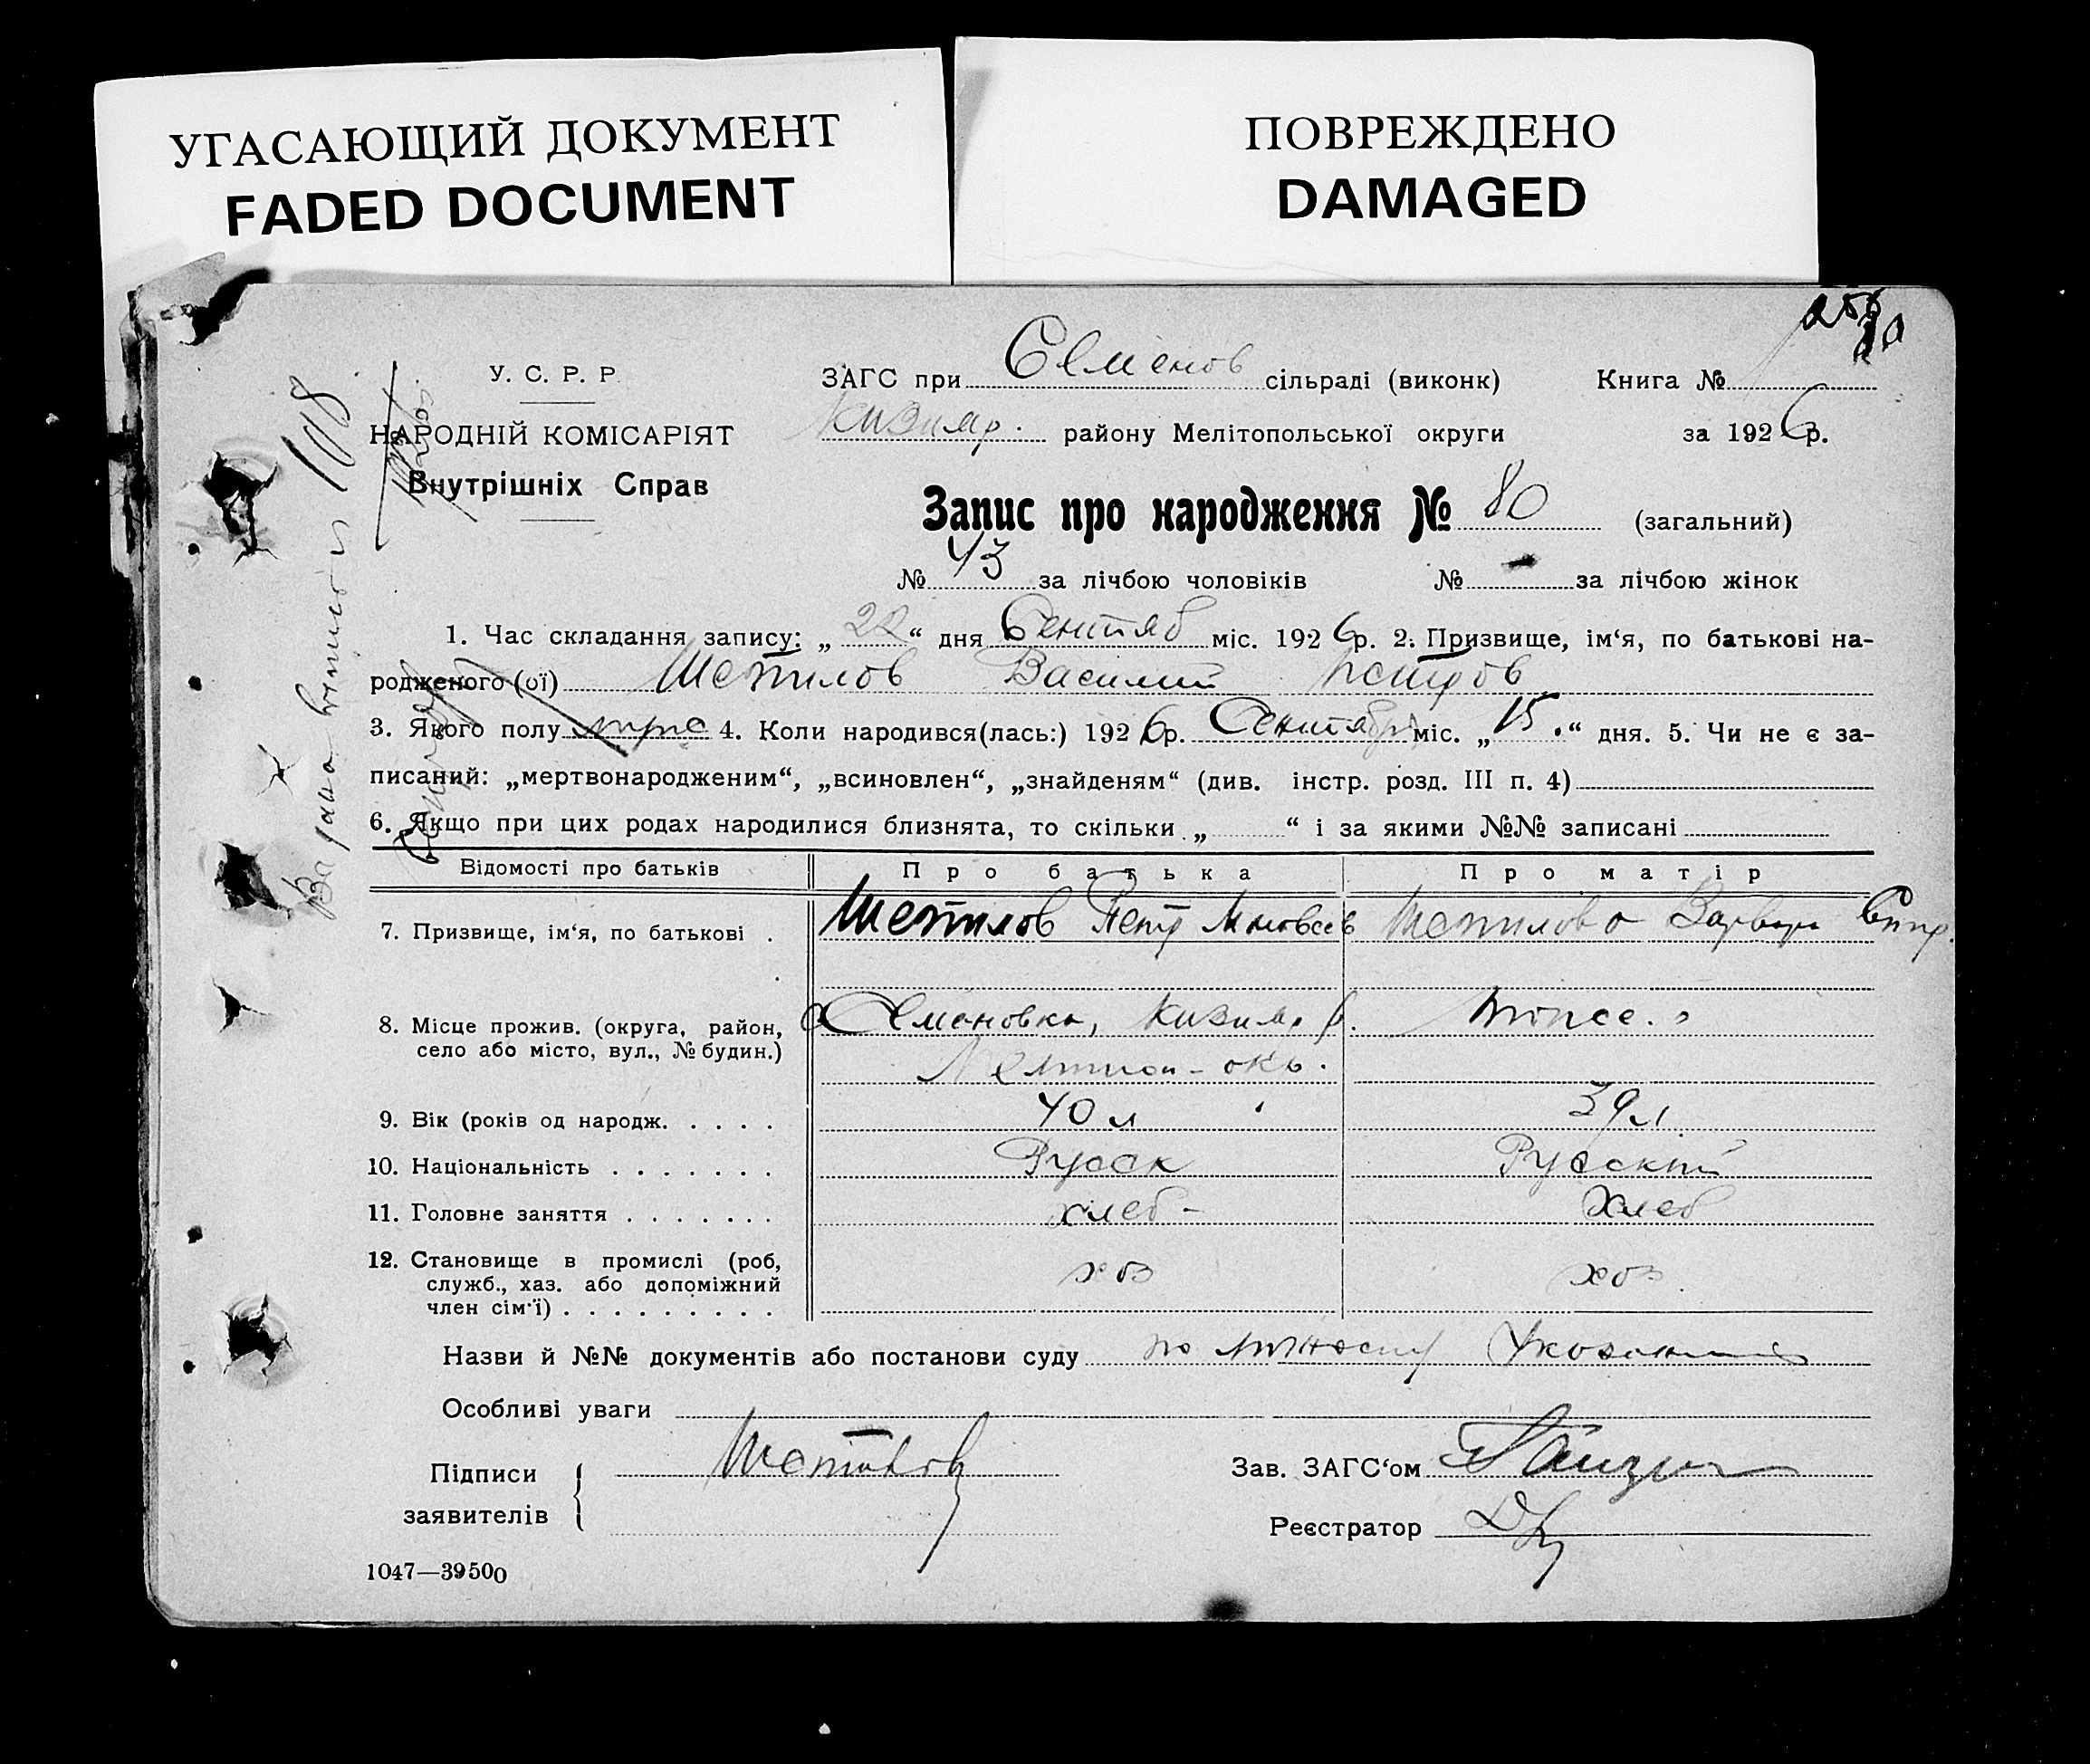 УГАСАЮЩИЙ ДОКУМЕНТ
FADED DOCUMENT
ПОВРЕЖДЕНО
DAMAGED
У. С. Р. Р
НАРОДНІЙ КОМІСАРІЯТ
Внутрішніх Справ
108
ЗАГС при Семенов сільраді (виконк) Книга №
Кизияр. району Мелітопольської округи за 1926 р.
Запис про народження № 80 (загальний)
№ 43 за лічбою чоловіків № - за лічбою жінок
1. Час складання запису: „ 22 “ дня Сентяб міс. 1926 р. 2. Призвище, ім‘я, по батькові на-
родженого (ої) Шепилов Василий Петров
3. Якого полу 4. Коли народився(лась:) 1926 р. Сентябр міс. „ 15 . “ дня. 5. Чи не є за-
писаний: „мертвонародженим“, „всиновлен“, „знайденям“ (див. інстр. розд. III п. 4)
6. Якщо при цих родах народилися близнята, то скільки „ “ і за якими №№ записані
Відомості про батьків Про батька Про матір
7. Призвище, ім‘я, по батькові . Шепилов Петр Моисеев Шепилова Варвара
8. Місце прожив. (округа, район, Семеновка, Кизияр р.
село або місто, вул., № будин.) Мелитоп - окр.
9. Вік (років од народж. . . . . 40 л 39 л
10. Національність . . . . . . . Русск Русский
11. Головне заняття . . . . . . . хлеб - хлеб
12. Становище в промислі (роб, хоз хоз.
служб., хаз. або допоміжний
член сім‘ї) . . . . . . . . .
Назви й №№ документів або постанови суду по
Особливі уваги
Підписи Шепилов Зав. ЗАГС‘ом
заявителів Реєстратор
1047—39500